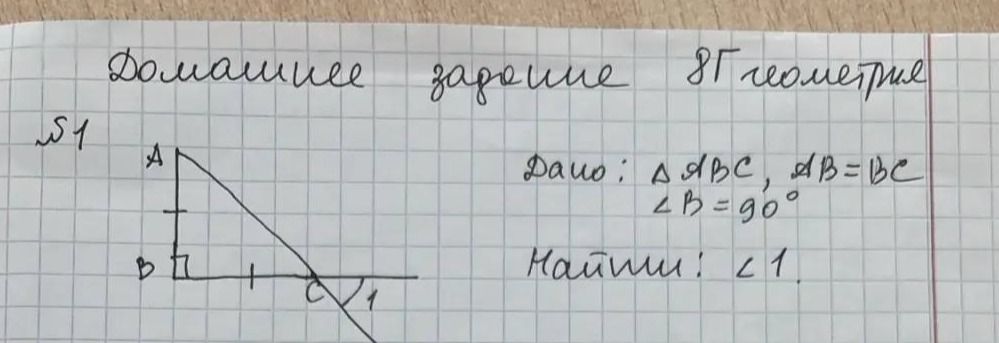 Домашнее задание 8Г геометрия
№1
Дано: △ABC, AB=BC
∠B=90°
Найти: ∠1.
A
B
C
1